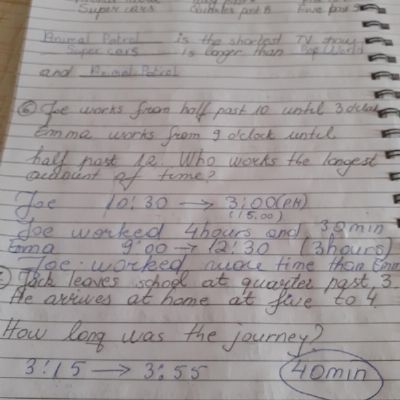 Super cars Quarter past 8 Five past 5
Animal Patrol is the shortest TV show
Super cars is longer than Pop World
and Animal Patrol
⑥ Joe works from half past 10 until 3 o'clock
Emma works from 9 o'clock until
half past 12. Who works the longest
amount of time?
Joe 10:30 → 3:00(PM)
(15.00)
Joe worked 4hours and 30min
Emma 9:00 → 12:30 (3hours)
Joe worked more time than Emma
Jack leaves school at quarter past 3.
He arrives at home at five to 4.
How long was the journey?
3:15 → 3:55 40min